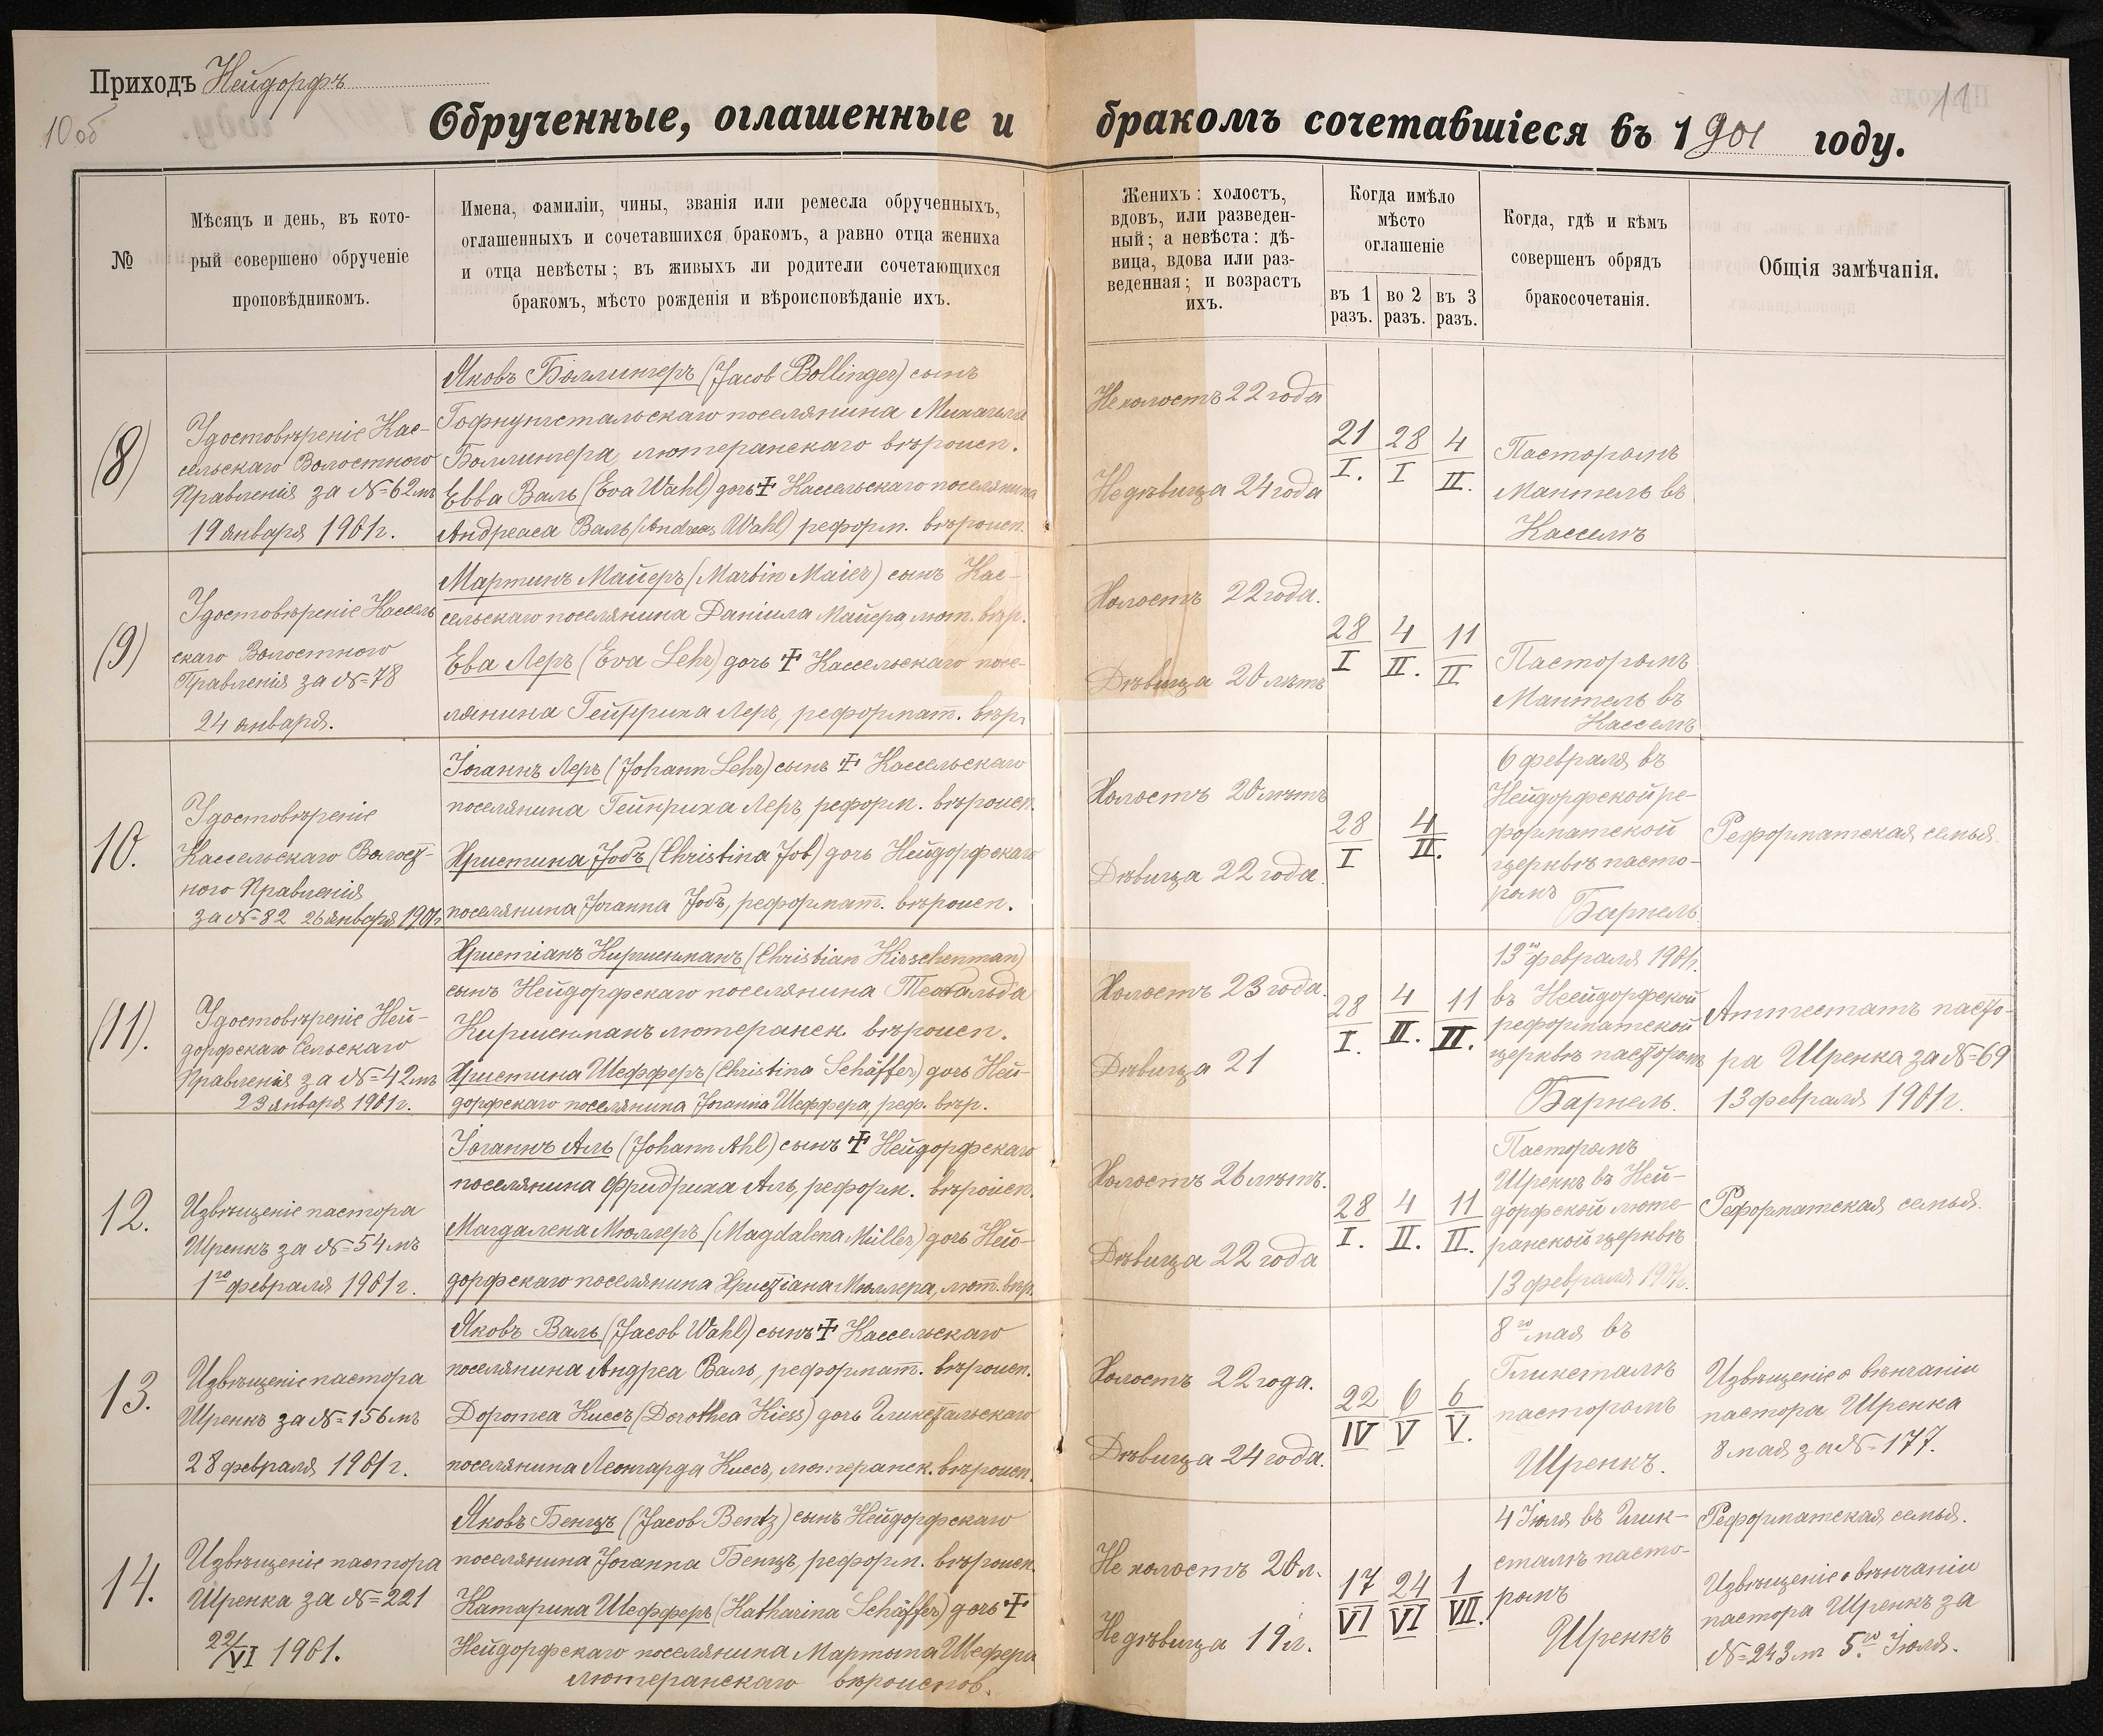 Приходъ Нейдорфъ
10 об
11
Обрученные, оглашенные и бракомъ сочетавшіеся въ 1901 году.
№
Мѣсяцъ и день, въ кото-
рый совершено обрученіе
проповѣдникомъ.
Имена, фамиліи, чины, званія или ремесла обрученныхъ,
оглашенныхъ и сочетавшихся бракомъ, а равно отца жениха
и отца невѣсты; въ живыхъ ли родители сочетающихся
бракомъ, мѣсто рожденія и вѣроисповѣданіе ихъ.
Женихъ: холостъ,
вдовъ, или разведен-
ный; а невѣста: дѣ-
вица, вдова или раз-
веденная; и возрастъ
ихъ.
Когда имѣло
мѣсто
оглашеніе
въ 1
разъ.
во 2
разъ.
въ 3
разъ.
Когда, гдѣ и кѣмъ
совершенъ обрядъ
бракосочетанія.
Общія замѣчанія.
(8)
Удостовѣреніе Кас-
сельскаго Волостного
Правленія за №=62мъ
19 января 1901г.
Яковъ Боллингеръ (Jacob Bollinger) сынъ
Гофнунгстальскаго поселянина Михаэля
Боллингера, лютеранскаго вѣроисп.
Евва Валь (Eva Wahl) дочь ✝ Кассельскаго поселянина
Андреаса Валь (Andreas Wahl) реформ. вѣроисп.
Не холостъ 22 года
Не дѣвица 24 года
21 28 4
I. I II.
Пасторомъ
Мантель въ
Касселѣ
(9)
Удостовѣреніе Кассель
скаго Волостного
Правленія за №=78
24 января.
Мартинъ Майеръ (Martin Maier) сынъ Кас-
сельскаго поселянина Даніила Майера, лют. вѣр.
Ева Леръ (Eva Lehr) дочь ✝ Кассельскаго посе-
лянина Гейнриха Леръ, реформат. вѣр.
Холостъ 22 года.
Дѣвица 20 лѣтъ
28 4 11
I II. II
Пасторомъ
Мантель въ
Касселѣ
10.
Удостовѣреніе
Кассельскаго Волост-
ного Правленія
за №=82 26 января 1901г.
Іоганнъ Леръ (Johann Lehr) сынъ ✝ Кассельскаго
поселянина Гейнриха Леръ, реформ. вѣроисп.
Христина Jобъ (Christina Job) дочь Нейдорфскаго
поселянина Jоганна Jобъ, реформат. вѣроисп.
Холостъ 20 лѣтъ
Дѣвица 22 года.
28 4
I II.
6 февраля въ
Нейдорфской ре-
форматской
церквѣ пасто-
ромъ
Барнель.
Реформатская семья.
(11).
Удостовѣреніе Ней-
дорфскаго Сельскаго
Правленія за №=42мъ
23 января 1901г.
Христіанъ Киршенманъ (Christian Kirschenman)
сынъ Нейдорфскаго поселянина Теобальда
Киршенманъ лютеранск. вѣроисп.
Христина Шефферъ (Christina Schäffer) дочь Ней-
дорфскаго поселянина Jоганна Шеффера, реф. вѣр.
Холостъ 23 года.
Дѣвица 21
28 4 11
I. II. II.
13го февраля 1901г.
въ Нейдорфской
реформатской
церквѣ пасторомъ
Барнель.
Аттестатъ пасто-
ра Шренка за №=69
13 февраля 1901г.
12.
Извѣщеніе пастора
Шренкъ за №=54мъ
1го февраля 1901г.
Іоганнъ Аль (Johann Ahl) сынъ ✝ Нейдорфскаго
поселянина Фридриха Аль, реформ. вѣроисп.
Магдалена Мюллеръ (Magdalena Müller) дочь Ней-
дорфскаго поселянина Христіана Мюллера, лют. вѣр.
Холостъ 26 лѣтъ.
Дѣвица 22 года
28 4 11
I. II. II.
Пасторомъ
Шренкъ въ Ней-
дорфской люте-
ранской церквѣ
13 февраля 1901г.
Реформатская семья.
13.
Извѣщеніе пастора
Шренкъ за №=156мъ
28 февраля 1901г.
Яковъ Валь (Jacob Wahl) сынъ ✝ Кассельскаго
поселянина Андреа Валь, реформат. вѣроисп.
Доротеа Киссъ (Dorothea Kiess) дочь Гликстальскаго
поселянина Леонгарда Киссъ, лютеранск. вѣроисп.
Холостъ 22 года.
Дѣвица 24 года.
22 6 6
IV V V.
8го мая въ
Гликсталѣ
пасторомъ
Шренкъ.
Извѣщеніе о вѣнчаніи
пастора Шренка
8 мая за №=177.
14.
Извѣщеніе пастора
Шренка за №=221
22/VI 1901.
Яковъ Бенцъ (Jacob Bentz) сынъ Нейдорфскаго
поселянина Jоганна Бенцъ, реформ. вѣроисп.
Катарина Шефферъ (Katharina Schäffer) дочь ✝
Нейдорфскаго поселянина Мартына Шефера
лютеранскаго вѣроиспов.
Не холостъ 20 л.
Не дѣвица 19 л.
17 24 1
VI VI VII.
4 Іюля въ Глик-
сталѣ пасто-
ромъ
Шренкъ
Реформатская семья.
Извѣщеніе о вѣнчаніи
пастора Шренкъ за
№=243мъ 5го Іюля.